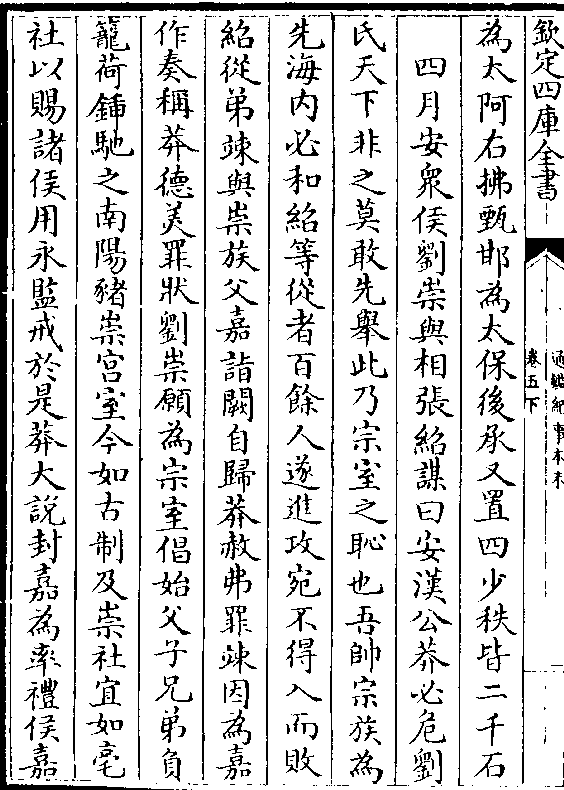 欽定四庫全書
通鑑紀事本末
卷五下
為太阿右拂甄邯為太保後承又置四少秩皆二千石
四月安衆侯劉崇與相張紹謀曰安漢公莽必危劉
氏天下非之莫敢先舉此乃宗室之恥也吾帥宗族為
先海内必和紹等從者百餘人遂進攻宛不得入而敗
紹從弟竦與崇族父嘉詣闕自歸莽赦弗罪竦因為嘉
作奏稱莽德美罪狀劉崇願為宗室倡始父子兄弟負
籠荷鍤馳之南陽豬崇宫室令如古制及崇社宜如亳
社以賜諸侯用永監戒於是莽大說封嘉為率禮侯嘉